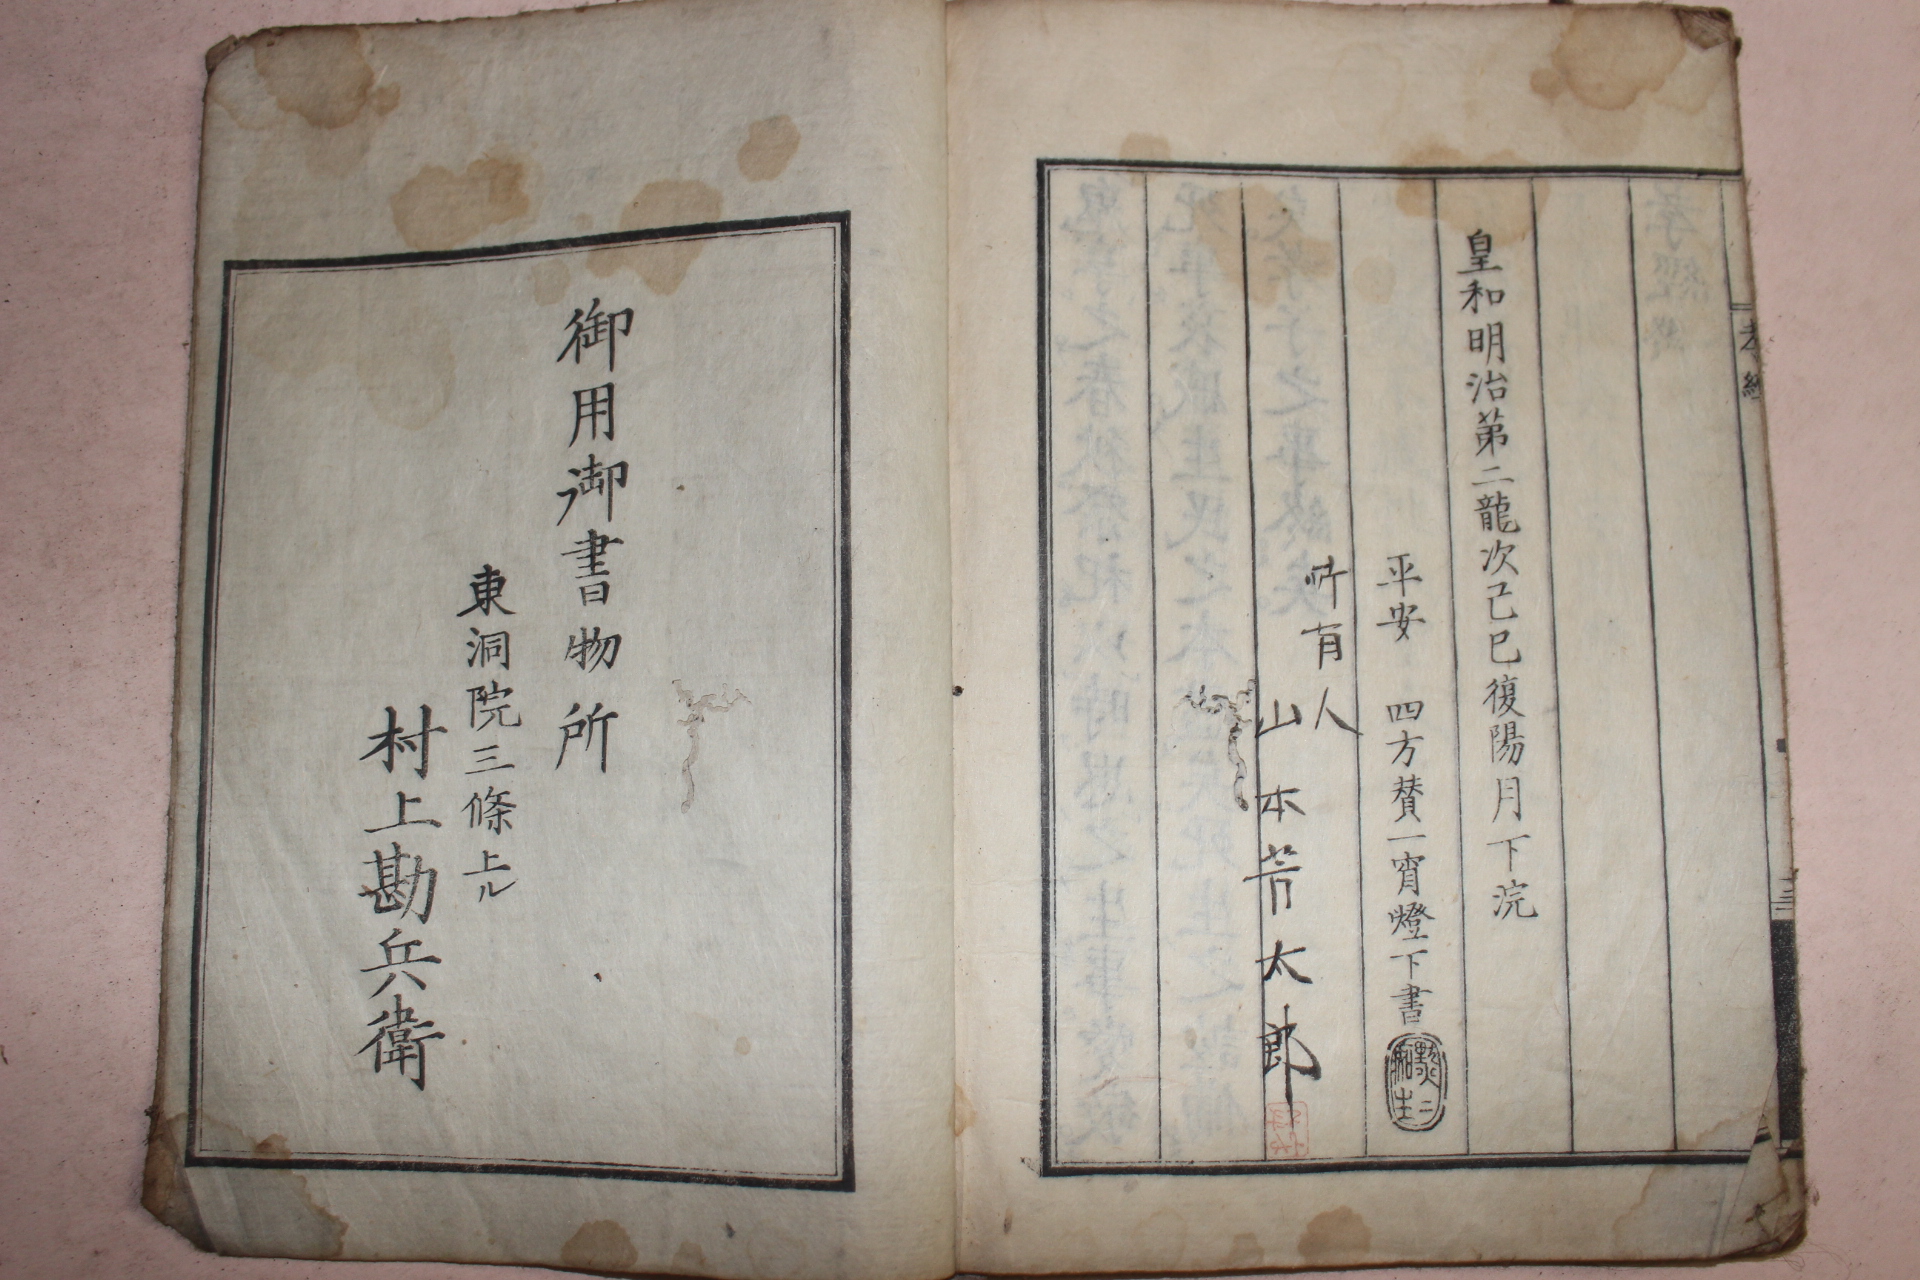 孝經
皇和明治第二龍次己巳復陽月下浣
平安　四方賛一宵燈下書
所有人
山本芳太郎
御用御書物所
東洞院三條上ル
村上勘兵衛